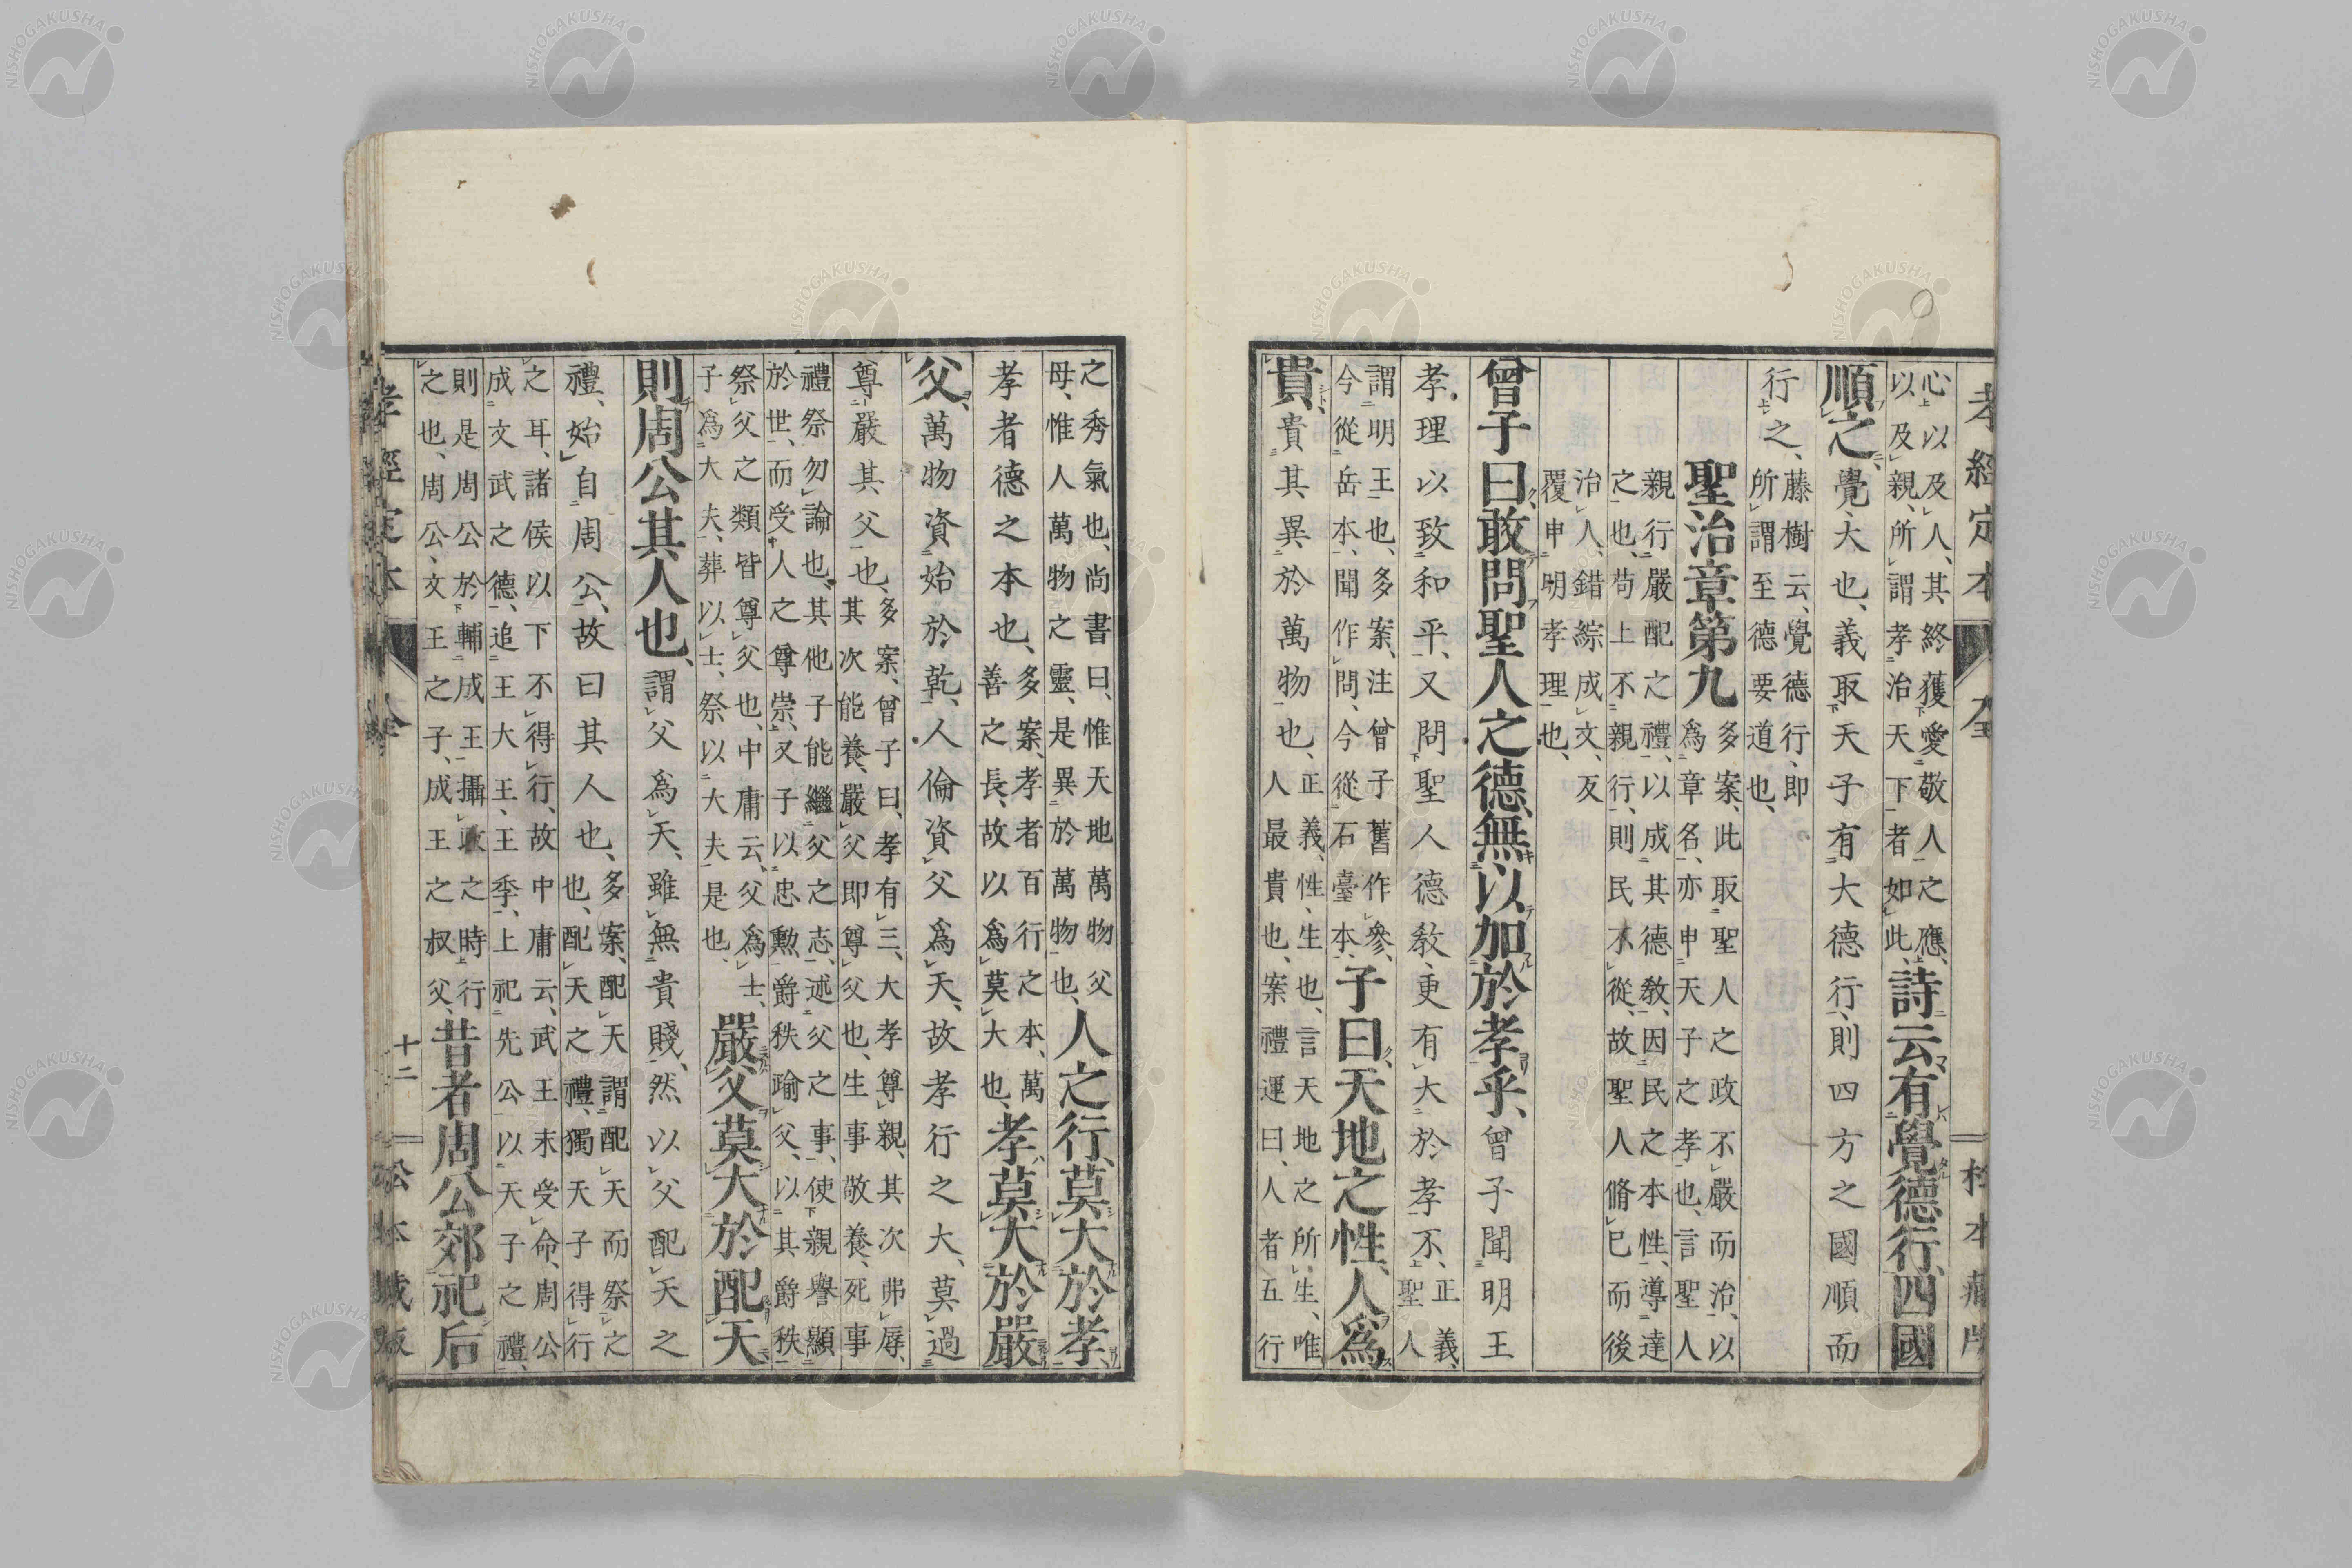 孝經定本
全
心以及人其終獲愛敬人之應、
以及親、所謂孝治天下者如此、
詩云有覺德行、四國
順之、覺、大也、義取天子有大德行、則四方之國順而
行之、
藤樹云、覺德行、即
所謂至德要道也、
聖治章第九
多案、此取聖人之政不嚴而治、以
爲章名、亦申天子之孝也、言聖人
親行嚴配之禮、以成其德敎、因民之本性、導達
之也、苟上不親行、則民不從、故聖人脩已而後
治人、錯綜成文、反
覆申明孝理也、
曾子曰敢問聖人之德、無以加於孝乎、曾子聞明王
孝理以致和平、又問聖人德敎、更有大於孝不、
正義、
聖人
謂明王也、多案、注曾子舊作參、
今從岳本、聞作問、今從石臺本、
子曰、天地之性、人爲
貴、貴其異於萬物也、
正義、性、生也、言天地之所生、唯
人最貴也、案禮運曰、人者五行
之秀氣也、尚書曰、惟天地萬物父
母、惟人萬物之靈、是異於萬物也、
人之行、莫大於孝、
孝者德之本也、
多案、孝者百行之本、萬
善之長、故以爲莫大也、
孝莫大於嚴
父、萬物資始於乾、人倫資父爲天、故孝行之大、莫過
尊嚴其父也、
多案、曾子曰、孝有三、大孝尊親、其次弗辱、
其次能養、嚴父即尊父也、生事敬養、死事
禮祭勿論也、其他子能繼父之志、述父之事、使親譽顯
於世、而受人之尊崇、又子以忠勲爵秩踰父、以其爵秩
祭父之類皆尊父也、中庸云、父爲士、
子爲大夫、葬以士、祭以大夫是也、
嚴父莫大於配天
則周公其人也、謂父爲天、雖無貴賤、然以父配天之
禮、始自周公、故曰其人也、
多案、配天謂配天而祭之
也、配天之禮、獨天子得行
之耳、諸侯以下不得行、故中庸云、武王末受命、周公
成文武之德、追王大王、王季、上祀先公以天子之禮、
則是周公於輔成王攝政之時行
之也、周公、文王之子、成王之叔父、
昔者周公郊祀后
孝經定本
全
十二
松本藏版